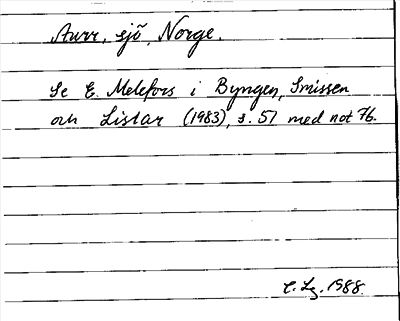 Aurr, sjö, Norge.
Se E. Melefors i Byngen, Smissen
och Listar (1983), s. 51 med not 76.
C. Lg. 1988.